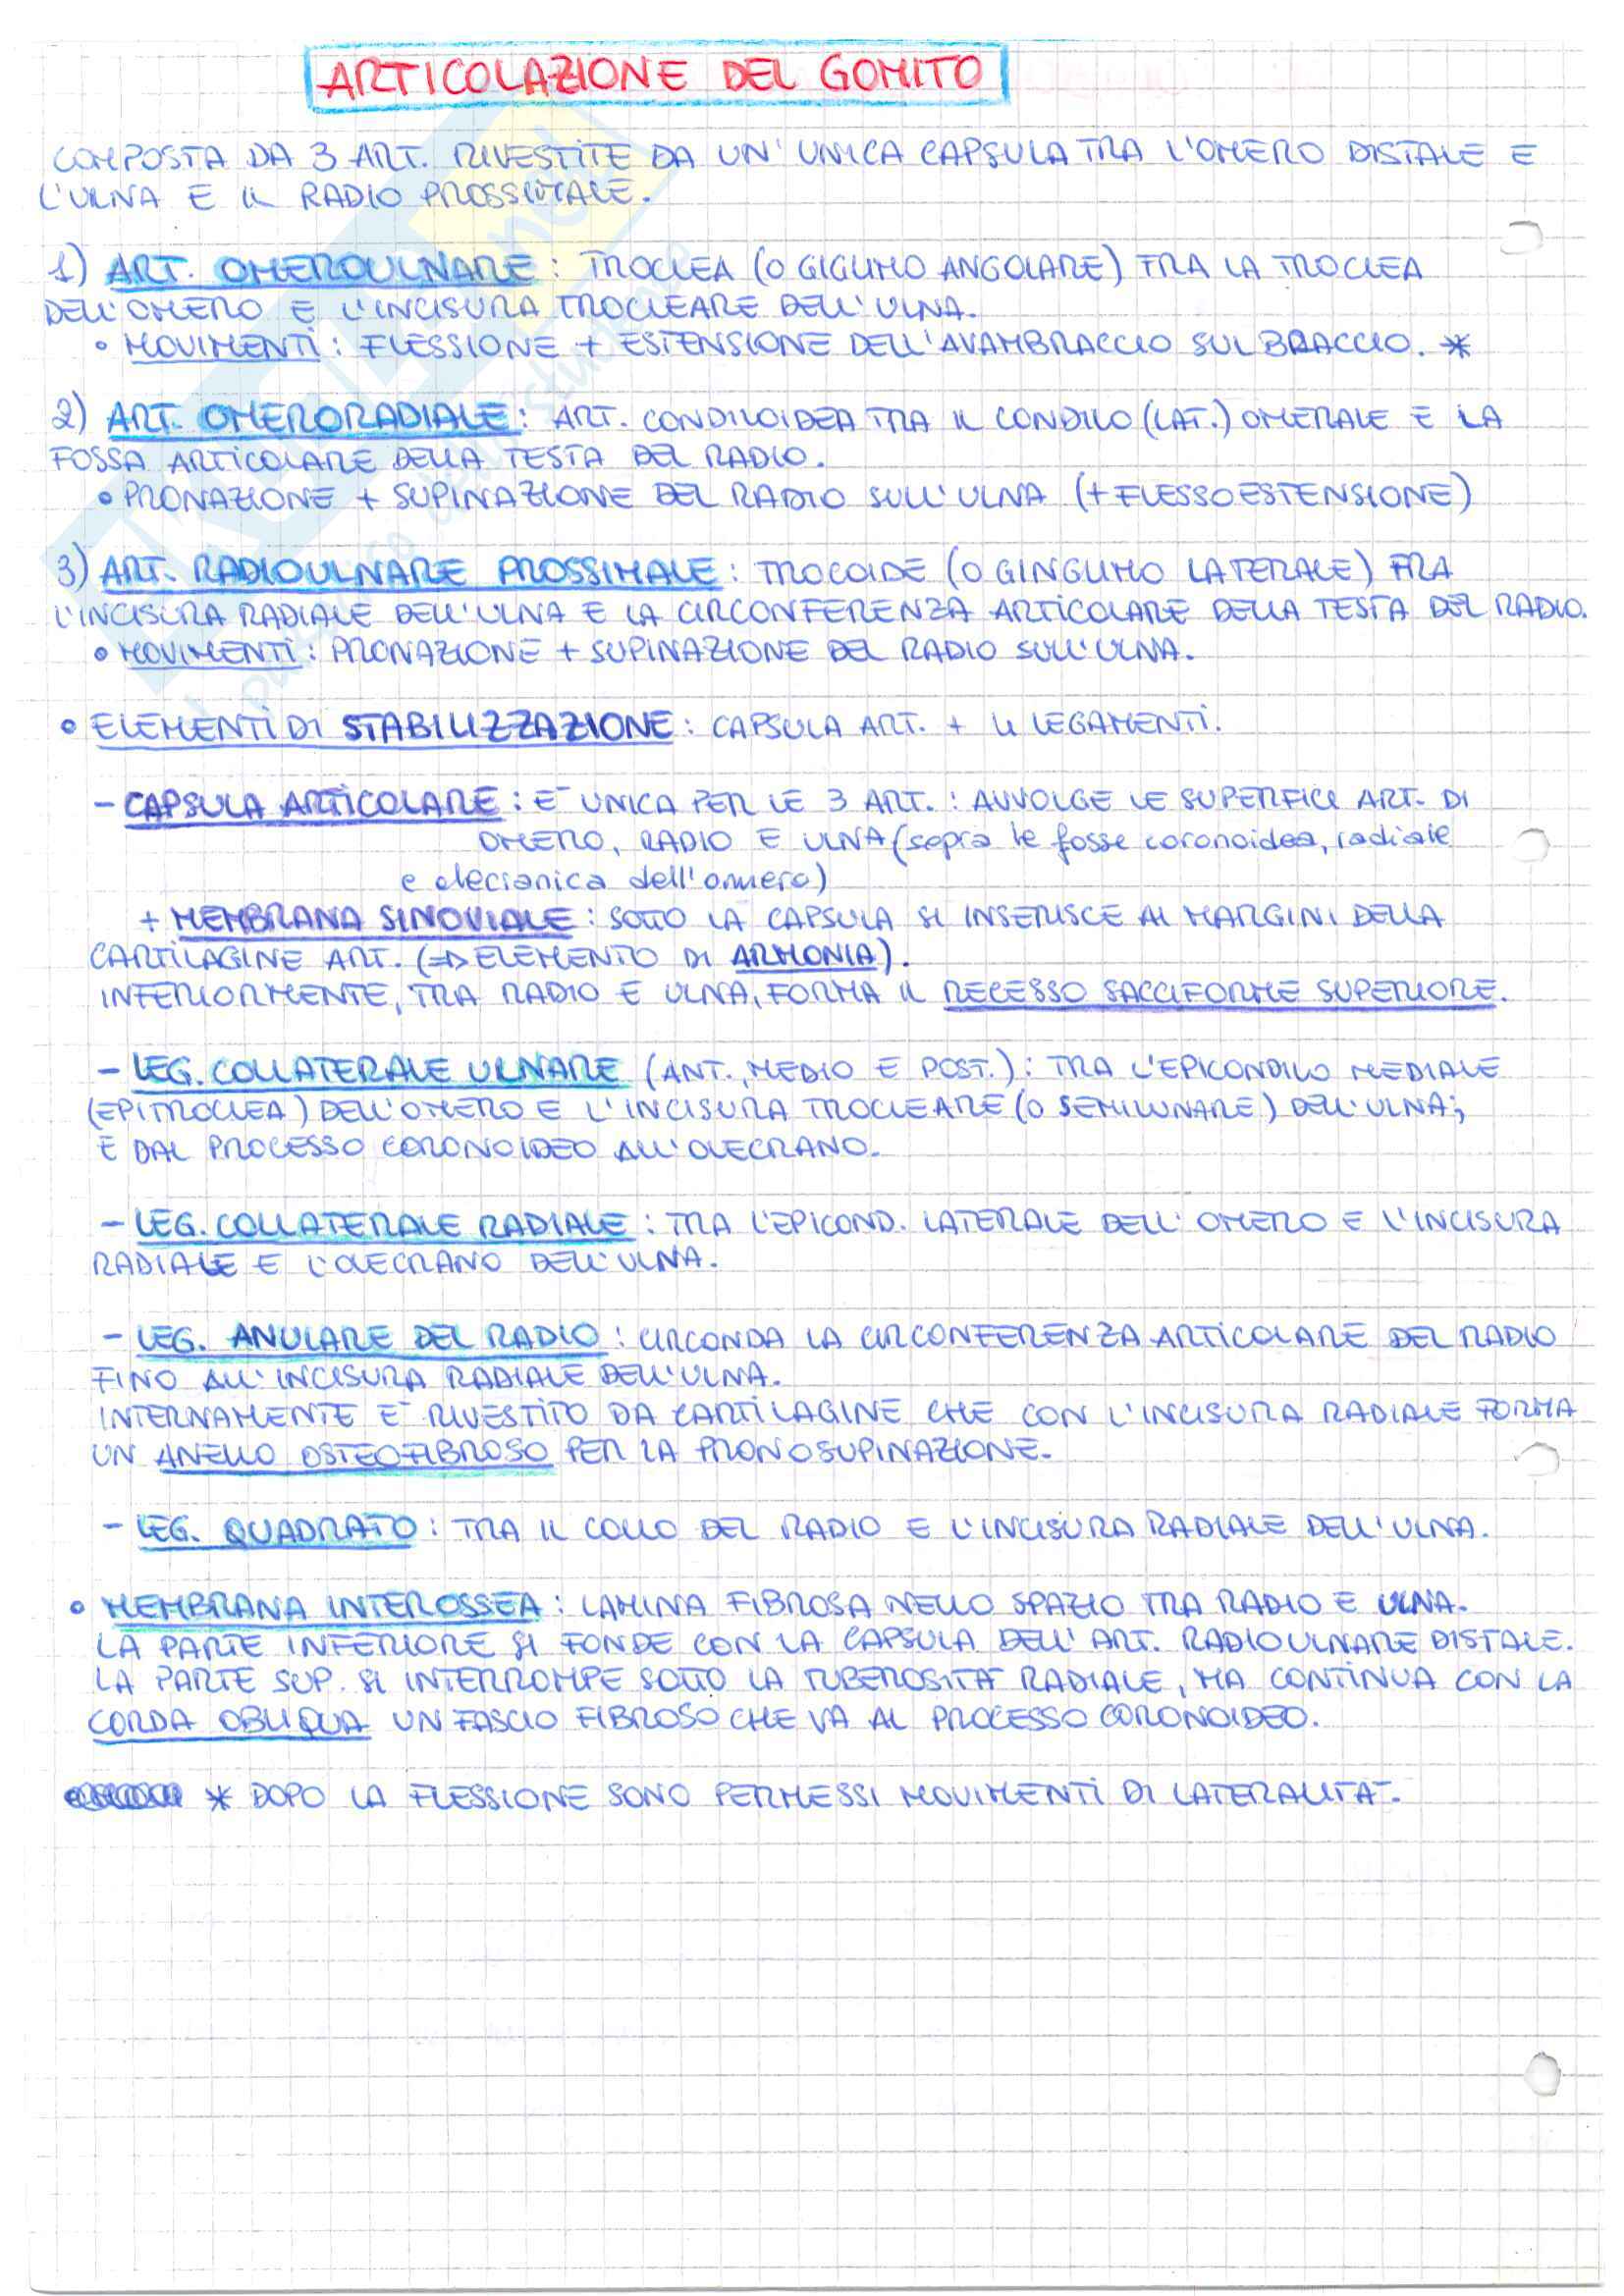 ARTICOLAZIONE DEL GOMITO
COMPOSTA DA 3 ART. RIVESTITE DA UN'UNICA CAPSULA TRA L'OMERO DISTALE E
L'ULNA E IL RADIO PROSSIMALE.
1) ART. OMEROULNARE: TROCLEA (O GIGLIMO ANGOLARE) TRA LA TROCLEA
DELL'OMERO E L'INCISURA TROCLEARE DELL'ULNA.
• MOVIMENTI: FLESSIONE + ESTENSIONE DELL'AVAMBRACCIO SUL BRACCIO. *
2) ART. OMERORADIALE: ART. CONDILOIDEA TRA IL CONDILO (LAT.) OMERALE E LA
FOSSA ARTICOLARE DELLA TESTA DEL RADIO.
• PRONAZIONE + SUPINAZIONE DEL RADIO SULL'ULNA (+ FLESSOESTENSIONE)
3) ART. RADIOULNARE PROSSIMALE: TROCOIDE (O GINGLIMO LATERALE) FRA
L'INCISURA RADIALE DELL'ULNA E LA CIRCONFERENZA ARTICOLARE DELLA TESTA DEL RADIO.
• MOVIMENTI: PRONAZIONE + SUPINAZIONE DEL RADIO SULL'ULNA.
• ELEMENTI DI STABILIZZAZIONE: CAPSULA ART. + 4 LEGAMENTI.
- CAPSULA ARTICOLARE: E' UNICA PER LE 3 ART.: AVVOLGE LE SUPERFICI ART. DI
OMERO, RADIO E ULNA (sopra le fosse coronoidea, radiale
e olecranica dell'omero)
+ MEMBRANA SINOVIALE: SOTTO LA CAPSULA SI INSERISCE AI MARGINI DELLA
CARTILAGINE ART. (=> ELEMENTO DI ARMONIA).
INFERIORMENTE, TRA RADIO E ULNA, FORMA IL RECESSO SACCIFORME SUPERIORE.
- LEG. COLLATERALE ULNARE (ANT., MEDIO E POST.): TRA L'EPICONDILO MEDIALE
(EPITROCLEA) DELL'OMERO E L'INCISURA TROCLEARE (O SEMILUNARE) DELL'ULNA;
E DAL PROCESSO CORONOIDEO ALL'OLECRANO.
- LEG. COLLATERALE RADIALE: TRA L'EPICOND. LATERALE DELL'OMERO E L'INCISURA
RADIALE E L'OLECRANO DELL'ULNA.
- LEG. ANULARE DEL RADIO: CIRCONDA LA CIRCONFERENZA ARTICOLARE DEL RADIO
FINO ALL'INCISURA RADIALE DELL'ULNA.
INTERNAMENTE E' RIVESTITO DA CARTILAGINE CHE CON L'INCISURA RADIALE FORMA
UN ANELLO OSTEOFIBROSO PER LA PRONOSUPINAZIONE.
- LEG. QUADRATO: TRA IL COLLO DEL RADIO E L'INCISURA RADIALE DELL'ULNA.
• MEMBRANA INTEROSSEA: LAMINA FIBROSA NELLO SPAZIO TRA RADIO E ULNA.
LA PARTE INFERIORE SI FONDE CON LA CAPSULA DELL'ART. RADIOULNARE DISTALE.
LA PARTE SUP. SI INTERROMPE SOTTO LA TUBEROSITA' RADIALE, MA CONTINUA CON LA
CORDA OBLIQUA UN FASCIO FIBROSO CHE VA AL PROCESSO CORONOIDEO.
* DOPO LA FLESSIONE SONO PERMESSI MOVIMENTI DI LATERALITA'.